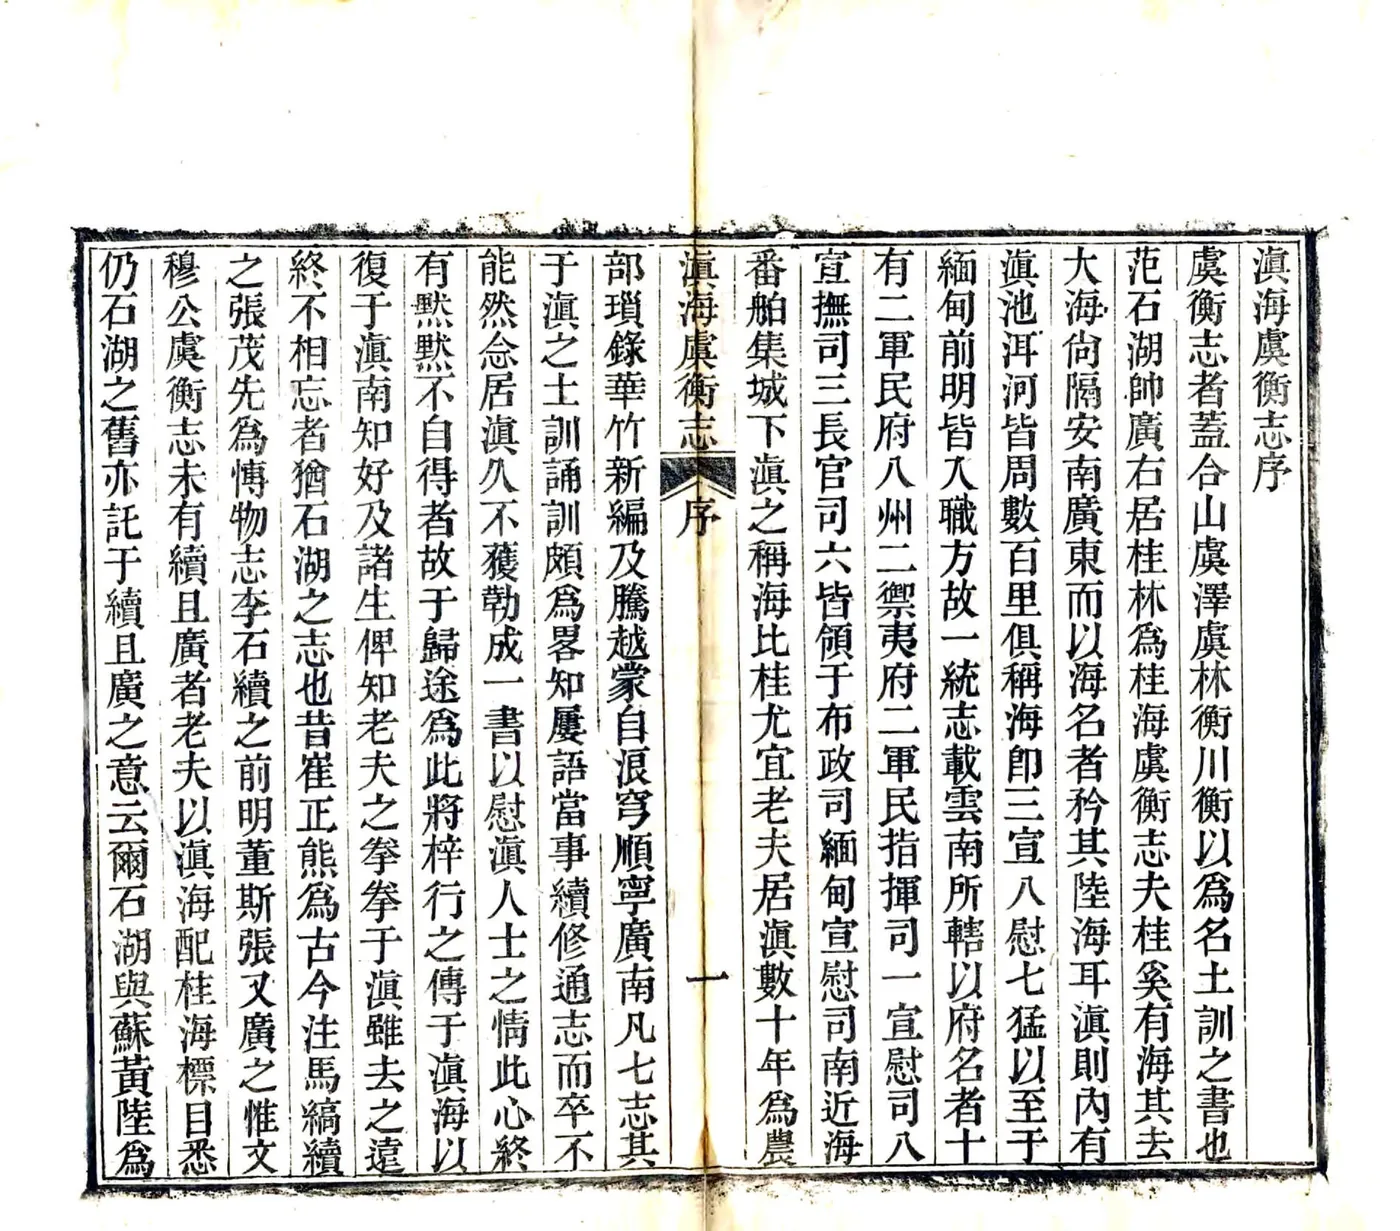 滇海虞衡志序
虞衡志者蓋合山虞澤虞林衡川衡以爲名土訓之書也
范石湖帥廣右居桂林爲桂海虞衡志夫桂奚有海其去
大海尙隔安南廣東而以海名者矜其陸海耳滇則內有
滇池洱河皆周數百里俱稱海卽三宣八慰七猛以至于
緬甸前明皆入職方故一統志載雲南所轄以府名者十
有二軍民府八州二禦夷府二軍民指揮司一宣慰司八
宣撫司三長官司六皆領于布政司緬甸宣慰司南近海
番舶集城下滇之稱海比桂尤宜老夫居滇數十年爲農
滇海虞衡志 序 一
部瑣錄華竹新編及騰越蒙自浪穹順寧廣南凡七志其
于滇之土訓誦訓頗爲畧知屢語當事續修通志而卒不
能然念居滇久不獲勒成一書以慰滇人士之情此心終
有默默不自得者故于歸途爲此將梓行之傳于滇海以
復于滇南知好及諸生俾知老夫之拳拳于滇雖去之遠
終不相忘者猶石湖之志也昔崔正熊爲古今注馬縞續
之張茂先爲愽物志李石續之前明董斯張又廣之惟文
穆公虞衡志未有續且廣者老夫以滇海配桂海標目悉
仍石湖之舊亦託于續且廣之意云爾石湖與蘇黃陸爲